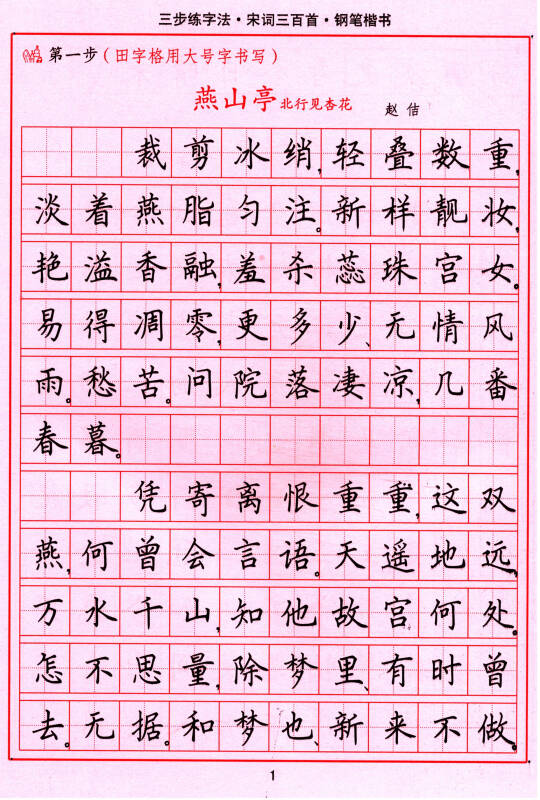 三步练字法·宋词三百首·钢笔楷书
第一步（田字格用大号字书写）
燕山亭 北行见杏花 赵佶
裁剪冰绡,轻叠数重,
淡着燕脂匀注。新样靓妆,
艳溢香融,羞杀蕊珠宫女。
易得凋零,更多少、无情风
雨。愁苦。问院落凄凉,几番
春暮。
凭寄离恨重重,这双
燕,何曾会言语。天遥地远,
万水千山,知他故宫何处。
怎不思量,除梦里、有时曾
去。无据。和梦也、新来不做。
1